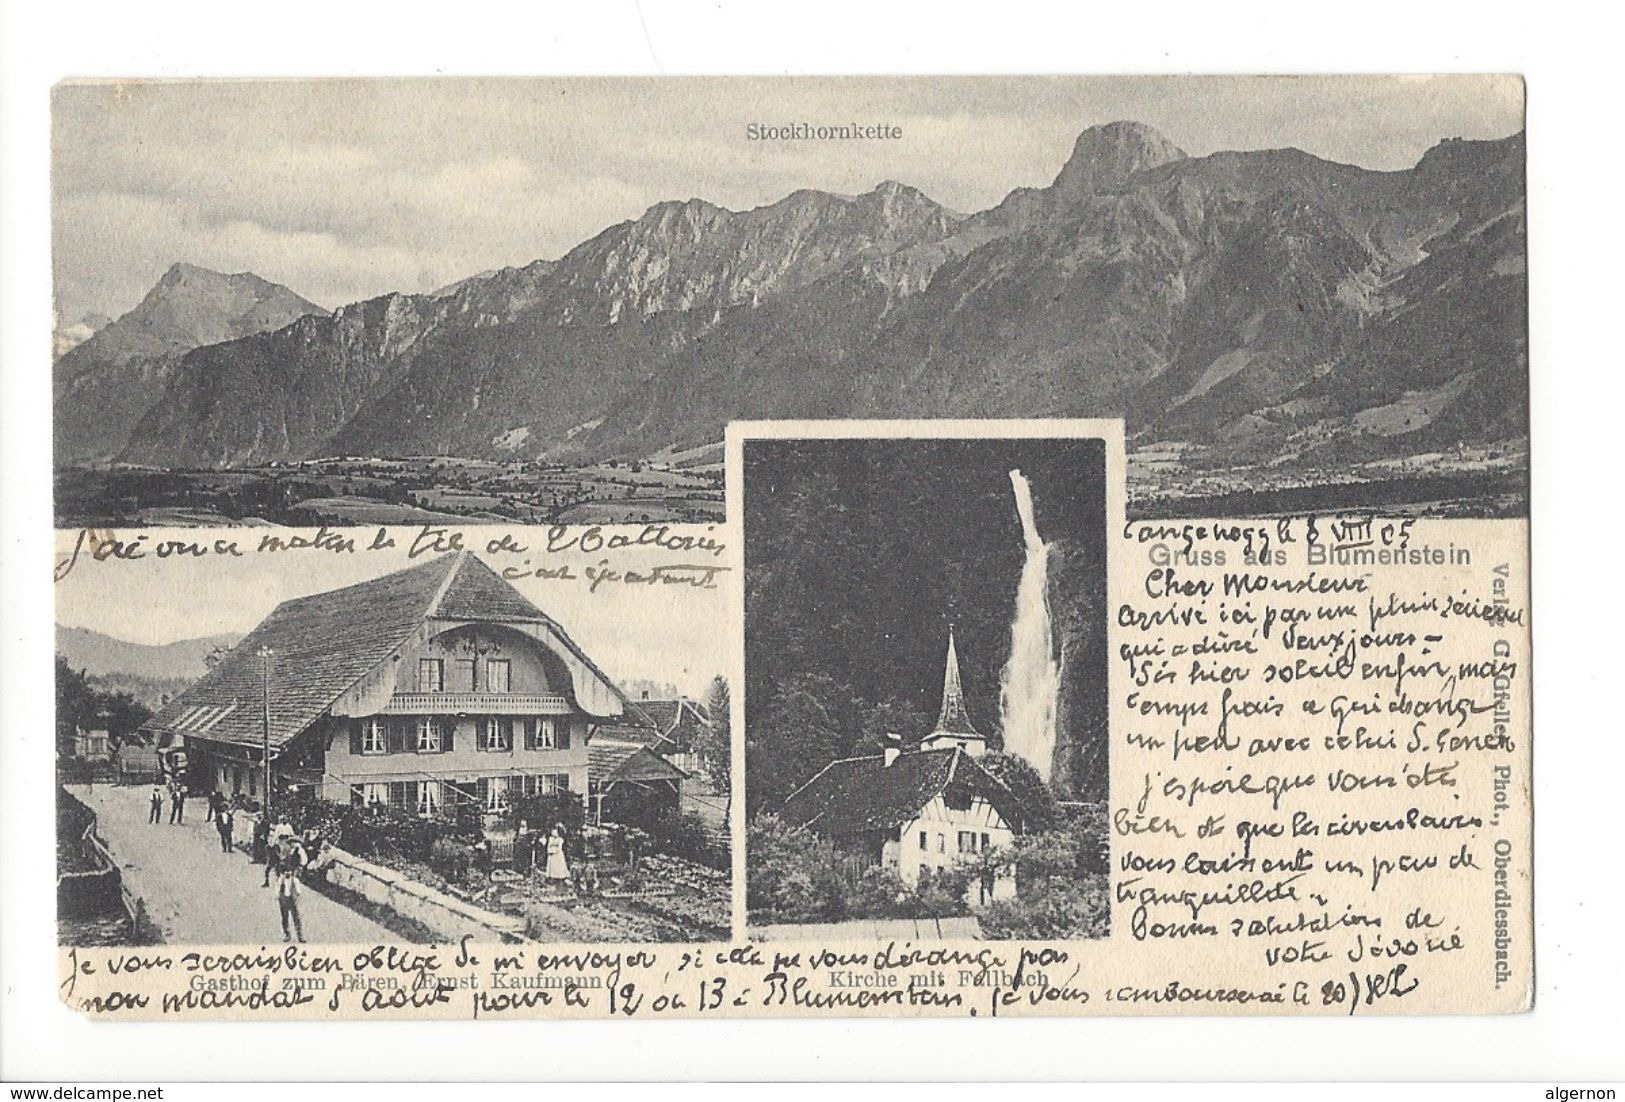 Stockhornkette
J'ai vu ce matin le tir de 2 batteries
c'est épatant
Langenegg le 8 VIII 05
Gruss aus Blumenstein
Cher Monsieur
arrivé ici par une pluie sérieuse
qui a duré deux jours -
Dès hier soleil enfin, mais
temps frais
un peu avec celui d.
j'espère que vous êtes
bien et que les circulaires
vous laissent un peu de
tranquillité.
Bonnes salutations de
votre dévoué
Je vous serais bien obligé de m'envoyer, si cela ne vous dérange pas,
Gasthof zum Bären, Ernst Kaufmann
Kirche mit Fallbach
mon mandat d'août pour le 12 ou 13 à Blumenstein. Je vous rembourserai le 20)
Verlag G. Gfeller, Phot., Oberdiessbach.
delcampe.net
algernon